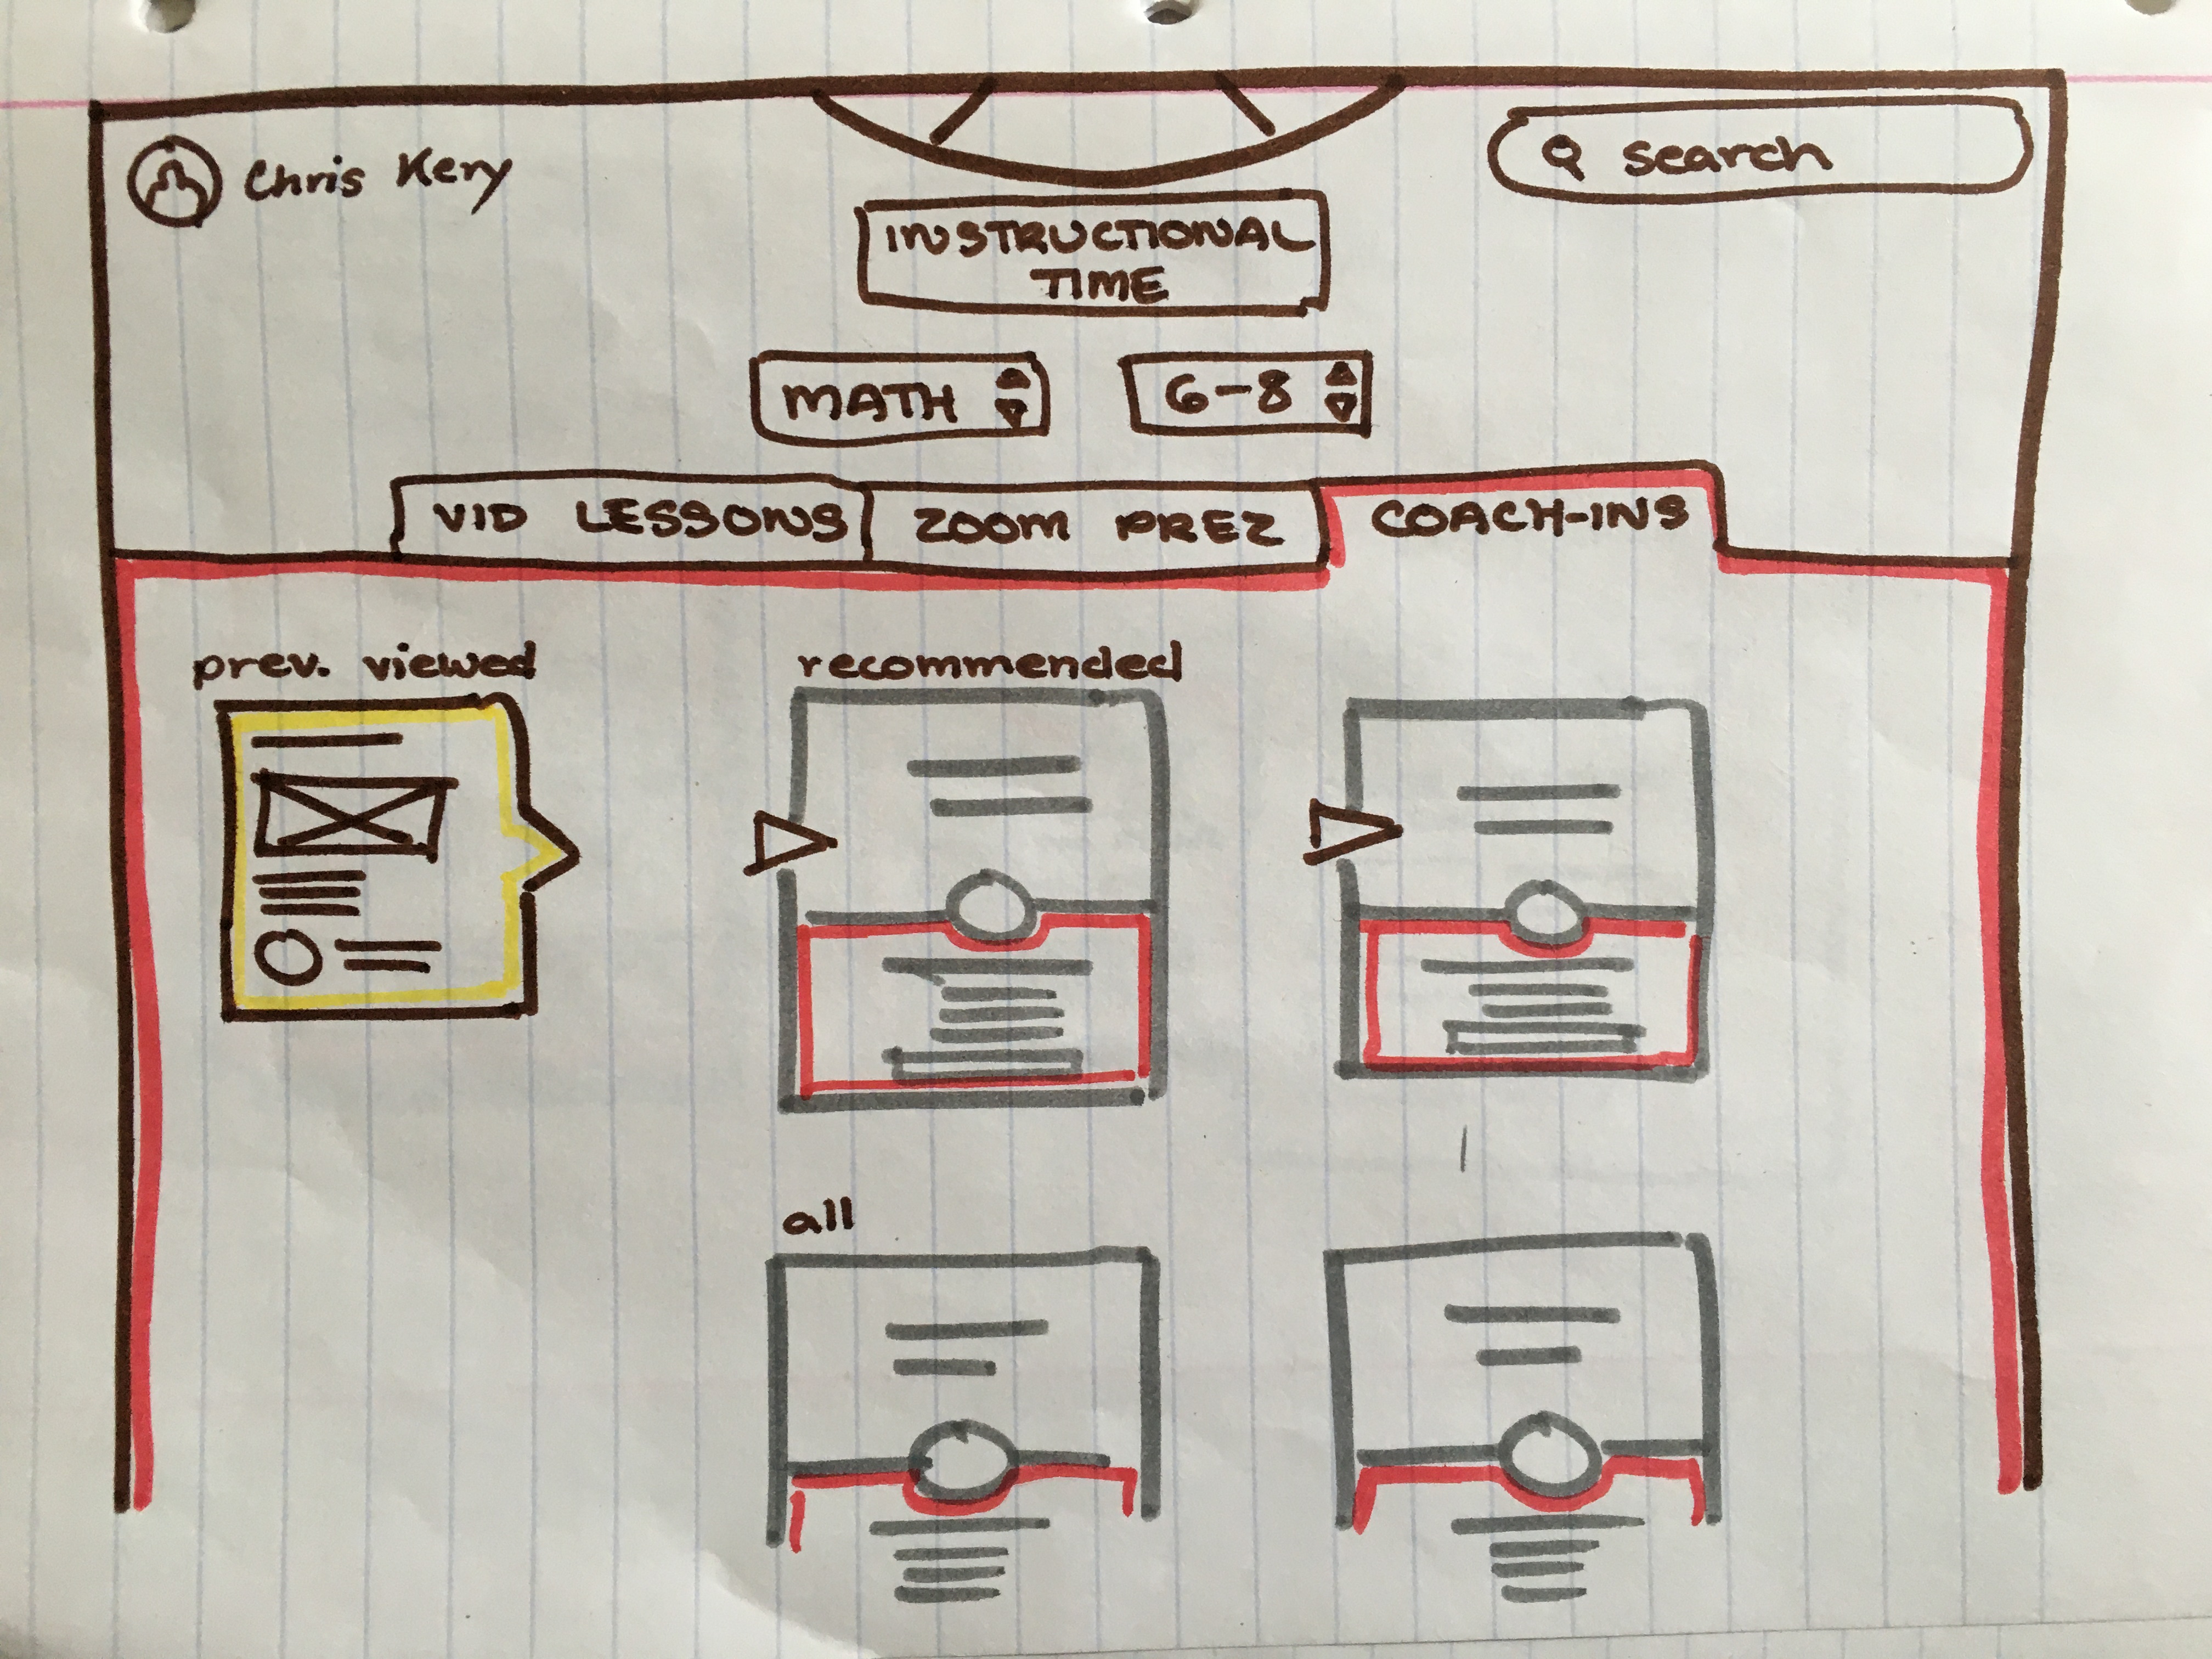 Chris Kery
search
INSTRUCTIONAL
TIME
MATH
6-8
VID LESSONS
ZOOM PREZ
COACH-INS
prev. viewed
recommended
all